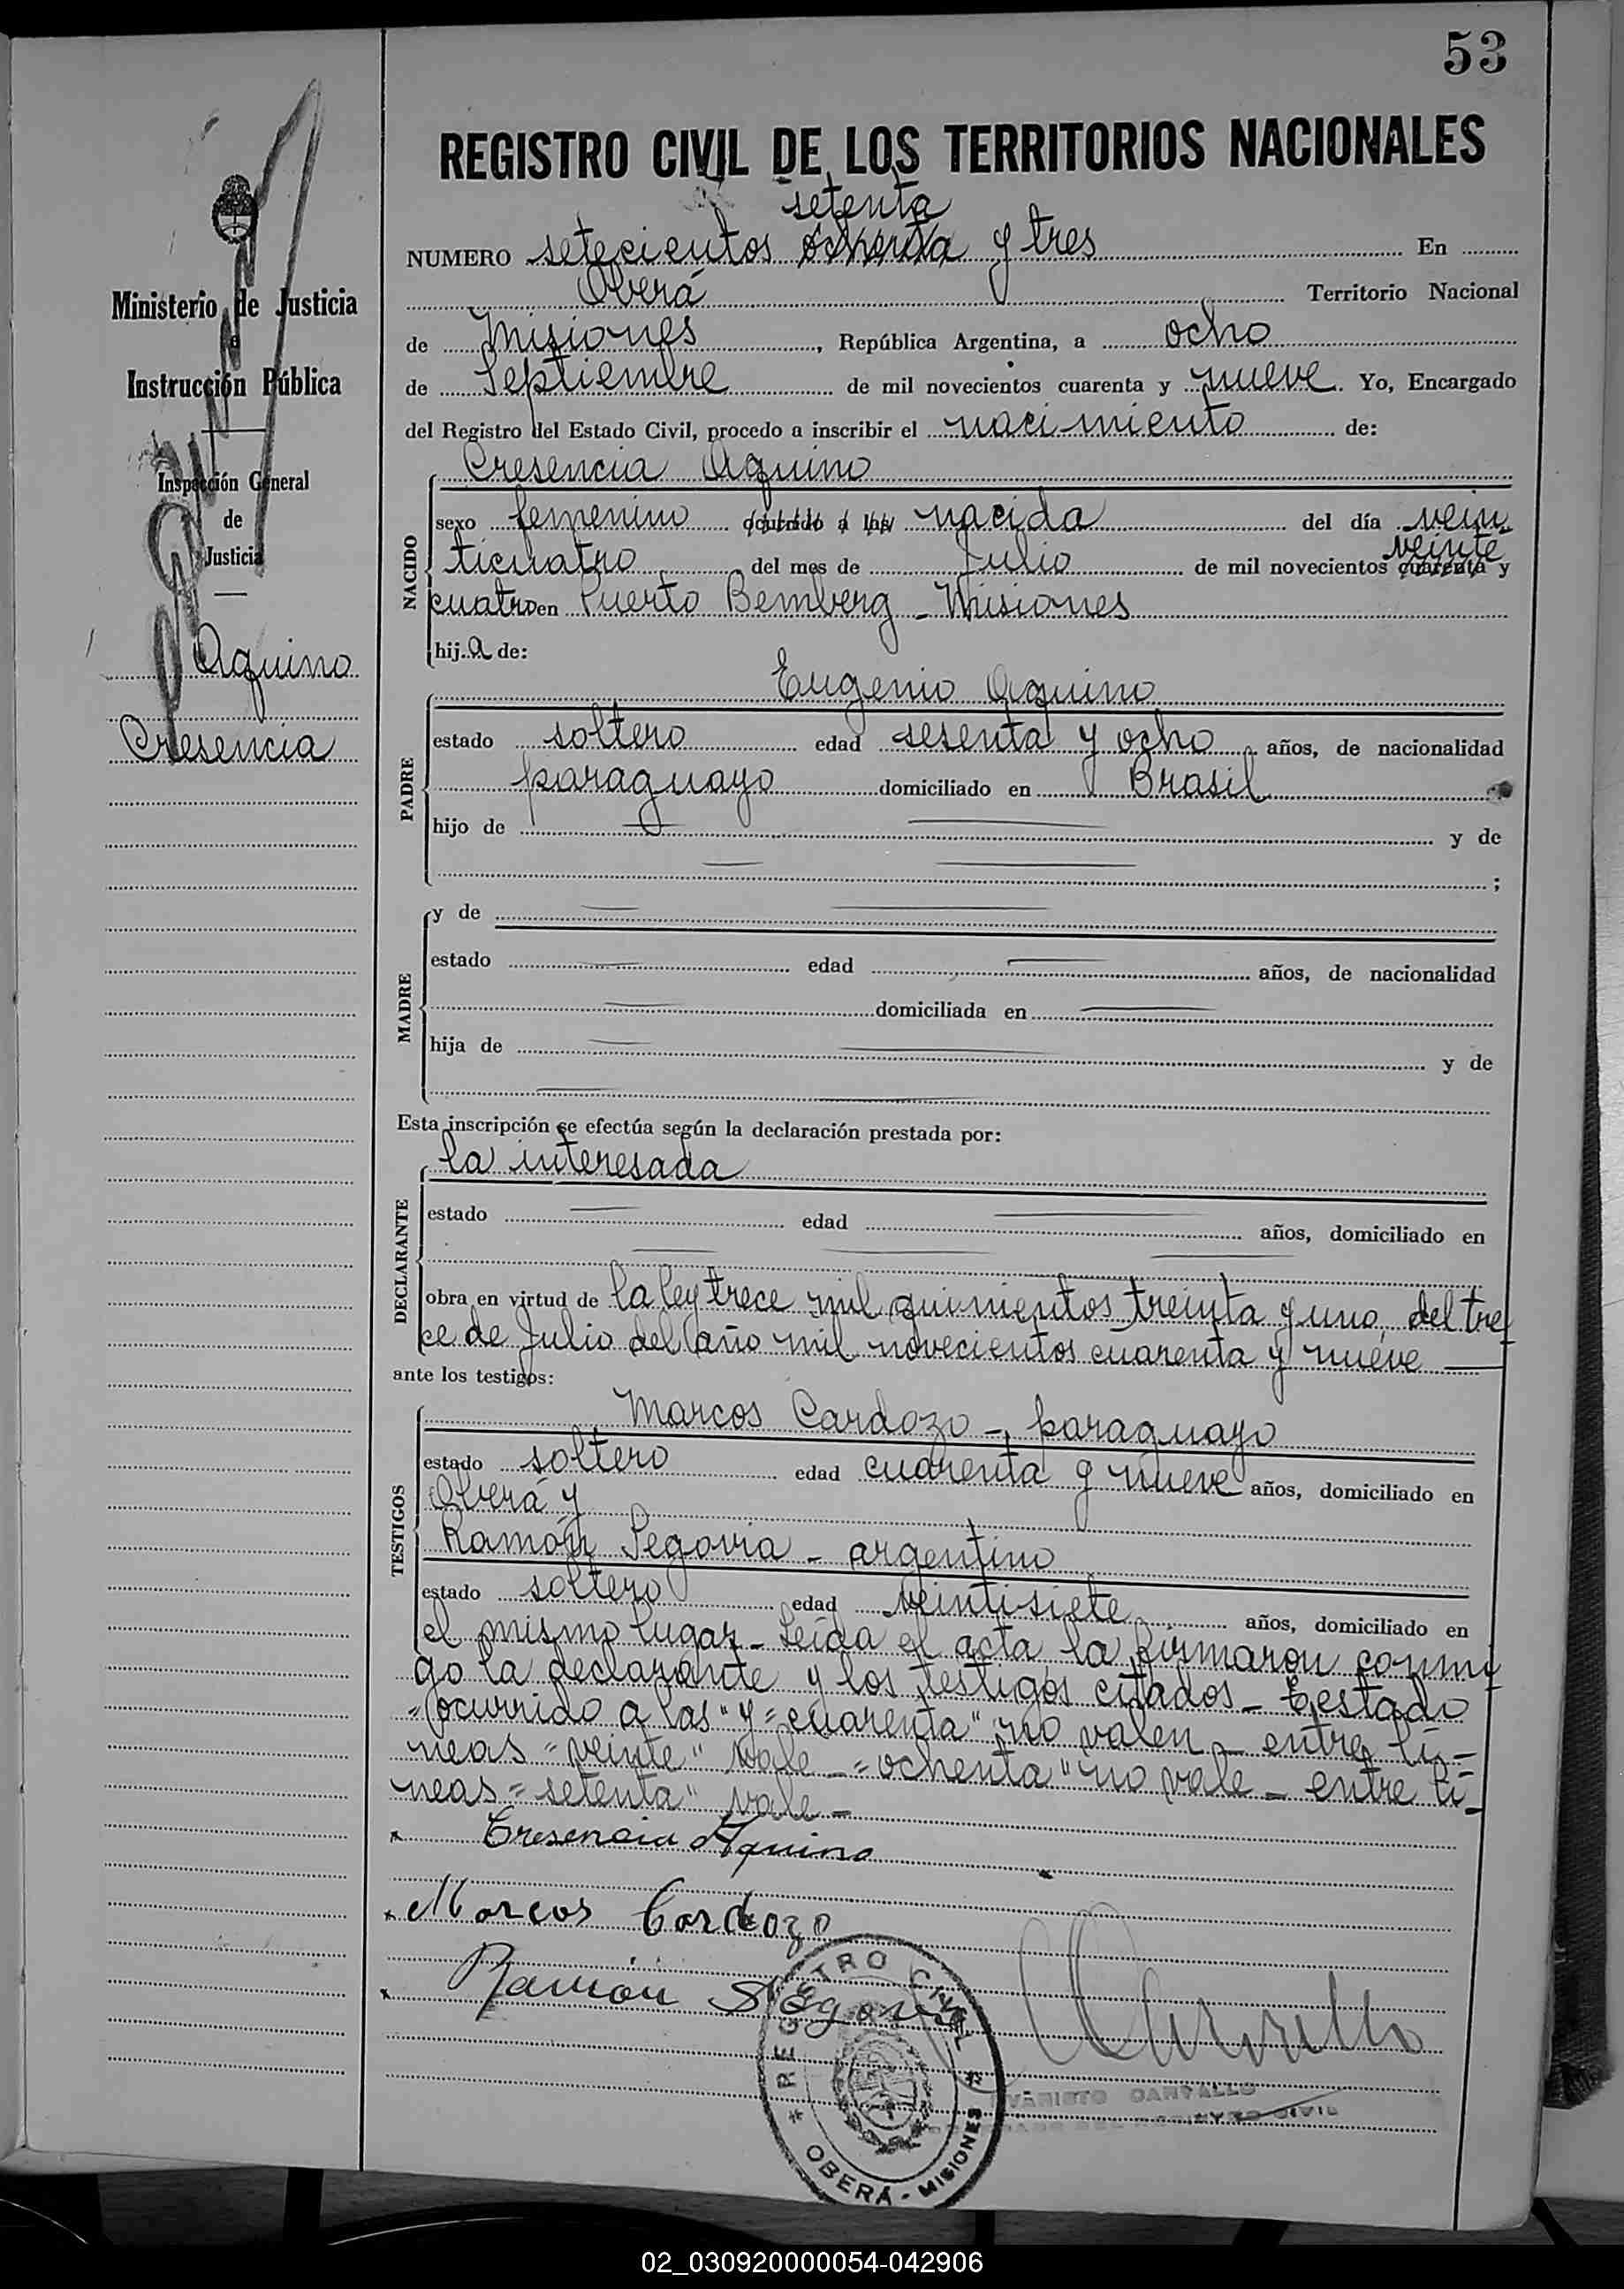 53
REGISTRO CIVIL DE LOS TERRITORIOS NACIONALES
setenta
NUMERO setecientos ochenta y tres En
Oberá Territorio Nacional
de Misiones, República Argentina, a ocho
de Septiembre de mil novecientos cuarenta y nueve. Yo, Encargado
del Registro del Estado Civil, procedo a inscribir el nacimiento de:
Ministerio de Justicia
e
Instrucción Pública
Inspección General
de
Justicia
Aquino
Cresencia
NACIDO
Cresencia Aquino
sexo femenino ocurrido a las nacida del día vein
veinte
ticuatro del mes de Julio de mil novecientos cuarenta y
cuatro en Puerto Bemberg - Misiones
hija de:
PADRE
Eugenio Aquino
estado soltero edad sesenta y ocho años, de nacionalidad
paraguayo domiciliado en Brasil
hijo de y de
;
MADRE
y de
estado edad años, de nacionalidad
domiciliada en
hija de y de
Esta inscripción se efectúa según la declaración prestada por:
DECLARANTE
la interesada
estado edad años, domiciliado en
obra en virtud de la ley trece mil quinientos treinta y uno, del tre
ce de Julio del año mil novecientos cuarenta y nueve
ante los testigos:
TESTIGOS
Marcos Cardozo -, paraguayo
estado soltero edad cuarenta y nueve años, domiciliado en
Oberá y
Ramón Segovia - argentino
estado soltero edad veintisiete años, domiciliado en
el mismo lugar - Leída el acta la firmaron conmi
go la declarante y los testigos citados - Testado
"ocurrido a las" y "cuarenta" no valen - entre lí-
neas "veinte" vale - "ochenta" no vale - entre lí-
neas "setenta" vale -
x Cresencia Aquino
x Marcos Cardozo
x Ramón Segovia
REGISTRO CIVIL
* OBERÁ - MISIONES *
EVARISTO CARVALLO
ENCARGADO DEL REGISTRO CIVIL
02_030920000054-042906